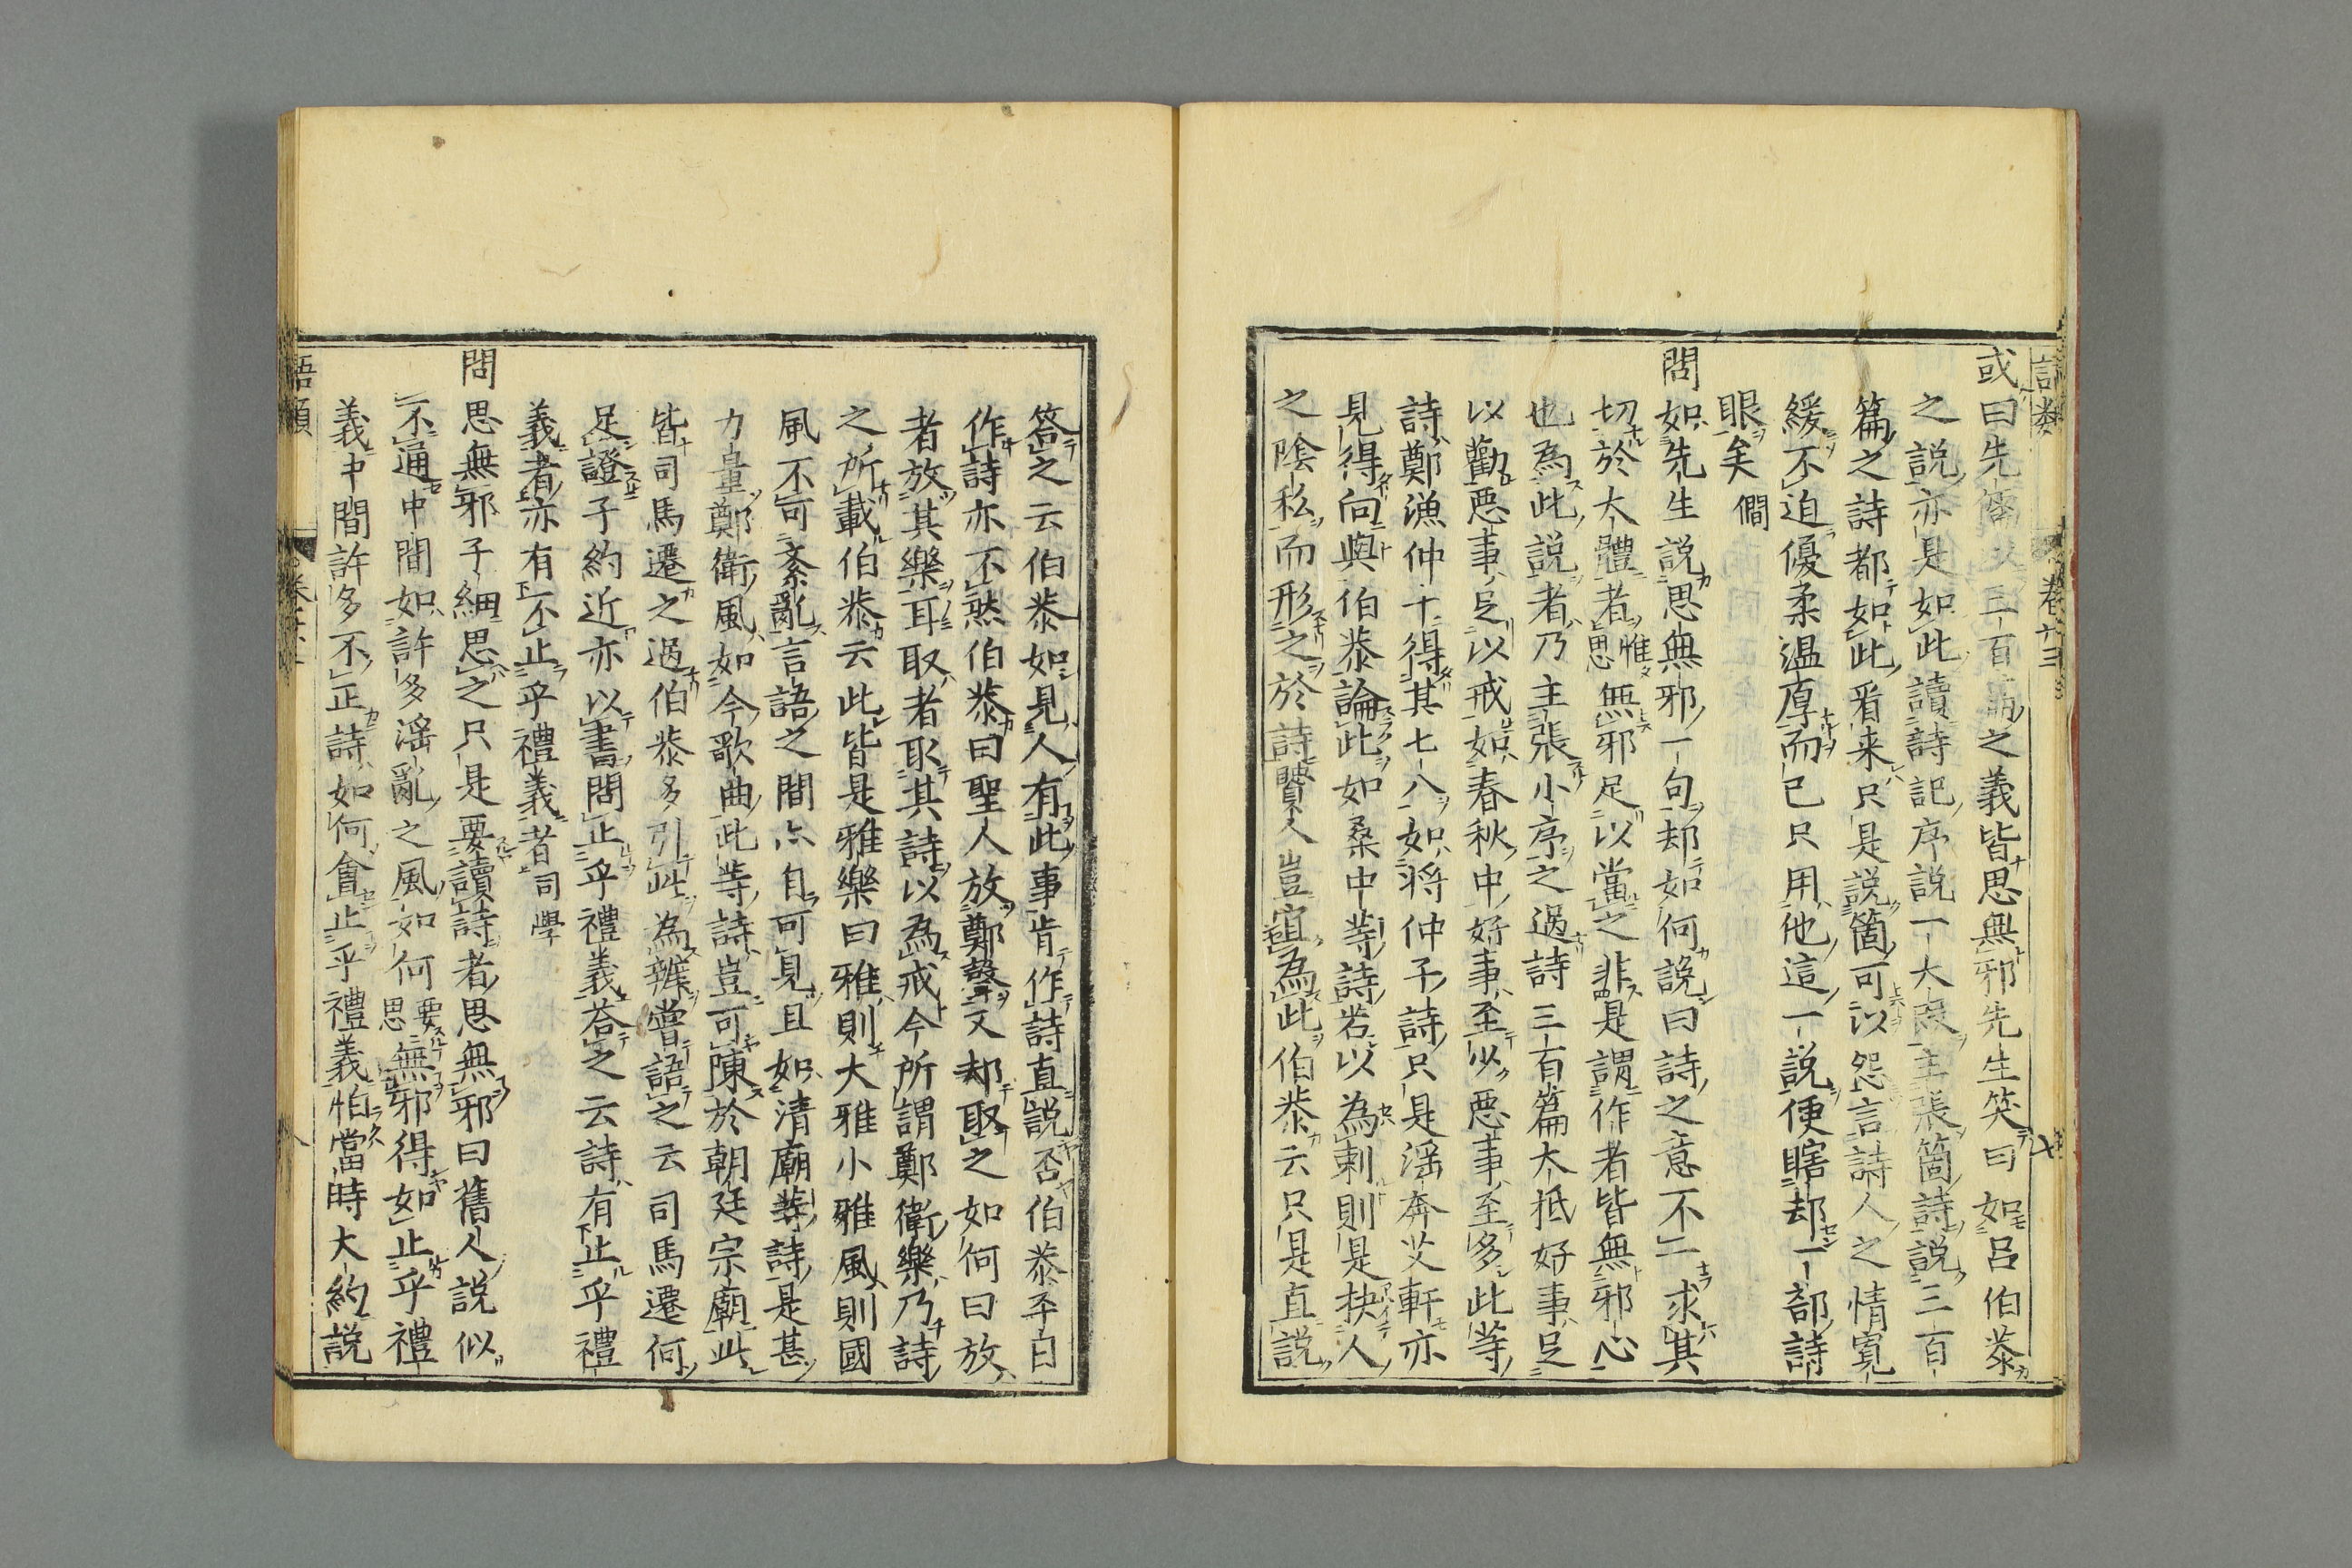 或曰先儒以三百篇之義皆思無邪先生笑曰如呂伯恭
之說亦是如此讀詩記序說一大段主張箇詩說三百
篇之詩都如此看来只是說箇可以怨言詩人之情寬
緩不迫優柔温厚而已只用他這一說便瞎却一部詩
眼矣 僩
問如先生說思無邪一句却如何說曰詩之意不一求其
切於大體者惟思無邪足以當之非是謂作者皆無邪心
也為此說者乃主張小序之過詩三百篇大抵好事足
以勸惡事足以戒如春秋中好事至少惡事至多此等
詩鄭漁仲十得其七八如將仲子詩只是淫奔艾軒亦
見得向與伯恭論此如桑中等詩若以為刺則是抉人
之陰私而形之於詩賢人豈宜為此伯恭云只是直說
答之云伯恭如見人有此事肯作詩直說否伯恭平日
作詩亦不然伯恭曰聖人放鄭聲又却取之如何曰放
者放其樂耳取者取其詩以為戒今所謂鄭衛樂乃詩
之所載伯恭云此皆是雅樂曰雅則大雅小雅風則國
風不可紊亂言語之間亦自可見且如清廟等詩是甚
力量鄭衛風如今歌曲此等詩豈可陳於朝廷宗廟此
皆司馬遷之過伯恭多引此為辨嘗語之云司馬遷何
足證子約近亦以書問止乎禮義答之云詩有止乎禮
義者亦有不止乎禮義者 司學
問思無邪子細思之只是要讀詩者思無邪曰舊人說似
不通中間如許多淫亂之風如何要思無邪得如止乎禮
義中間許多不正詩如何會止乎禮義怕當時大約說